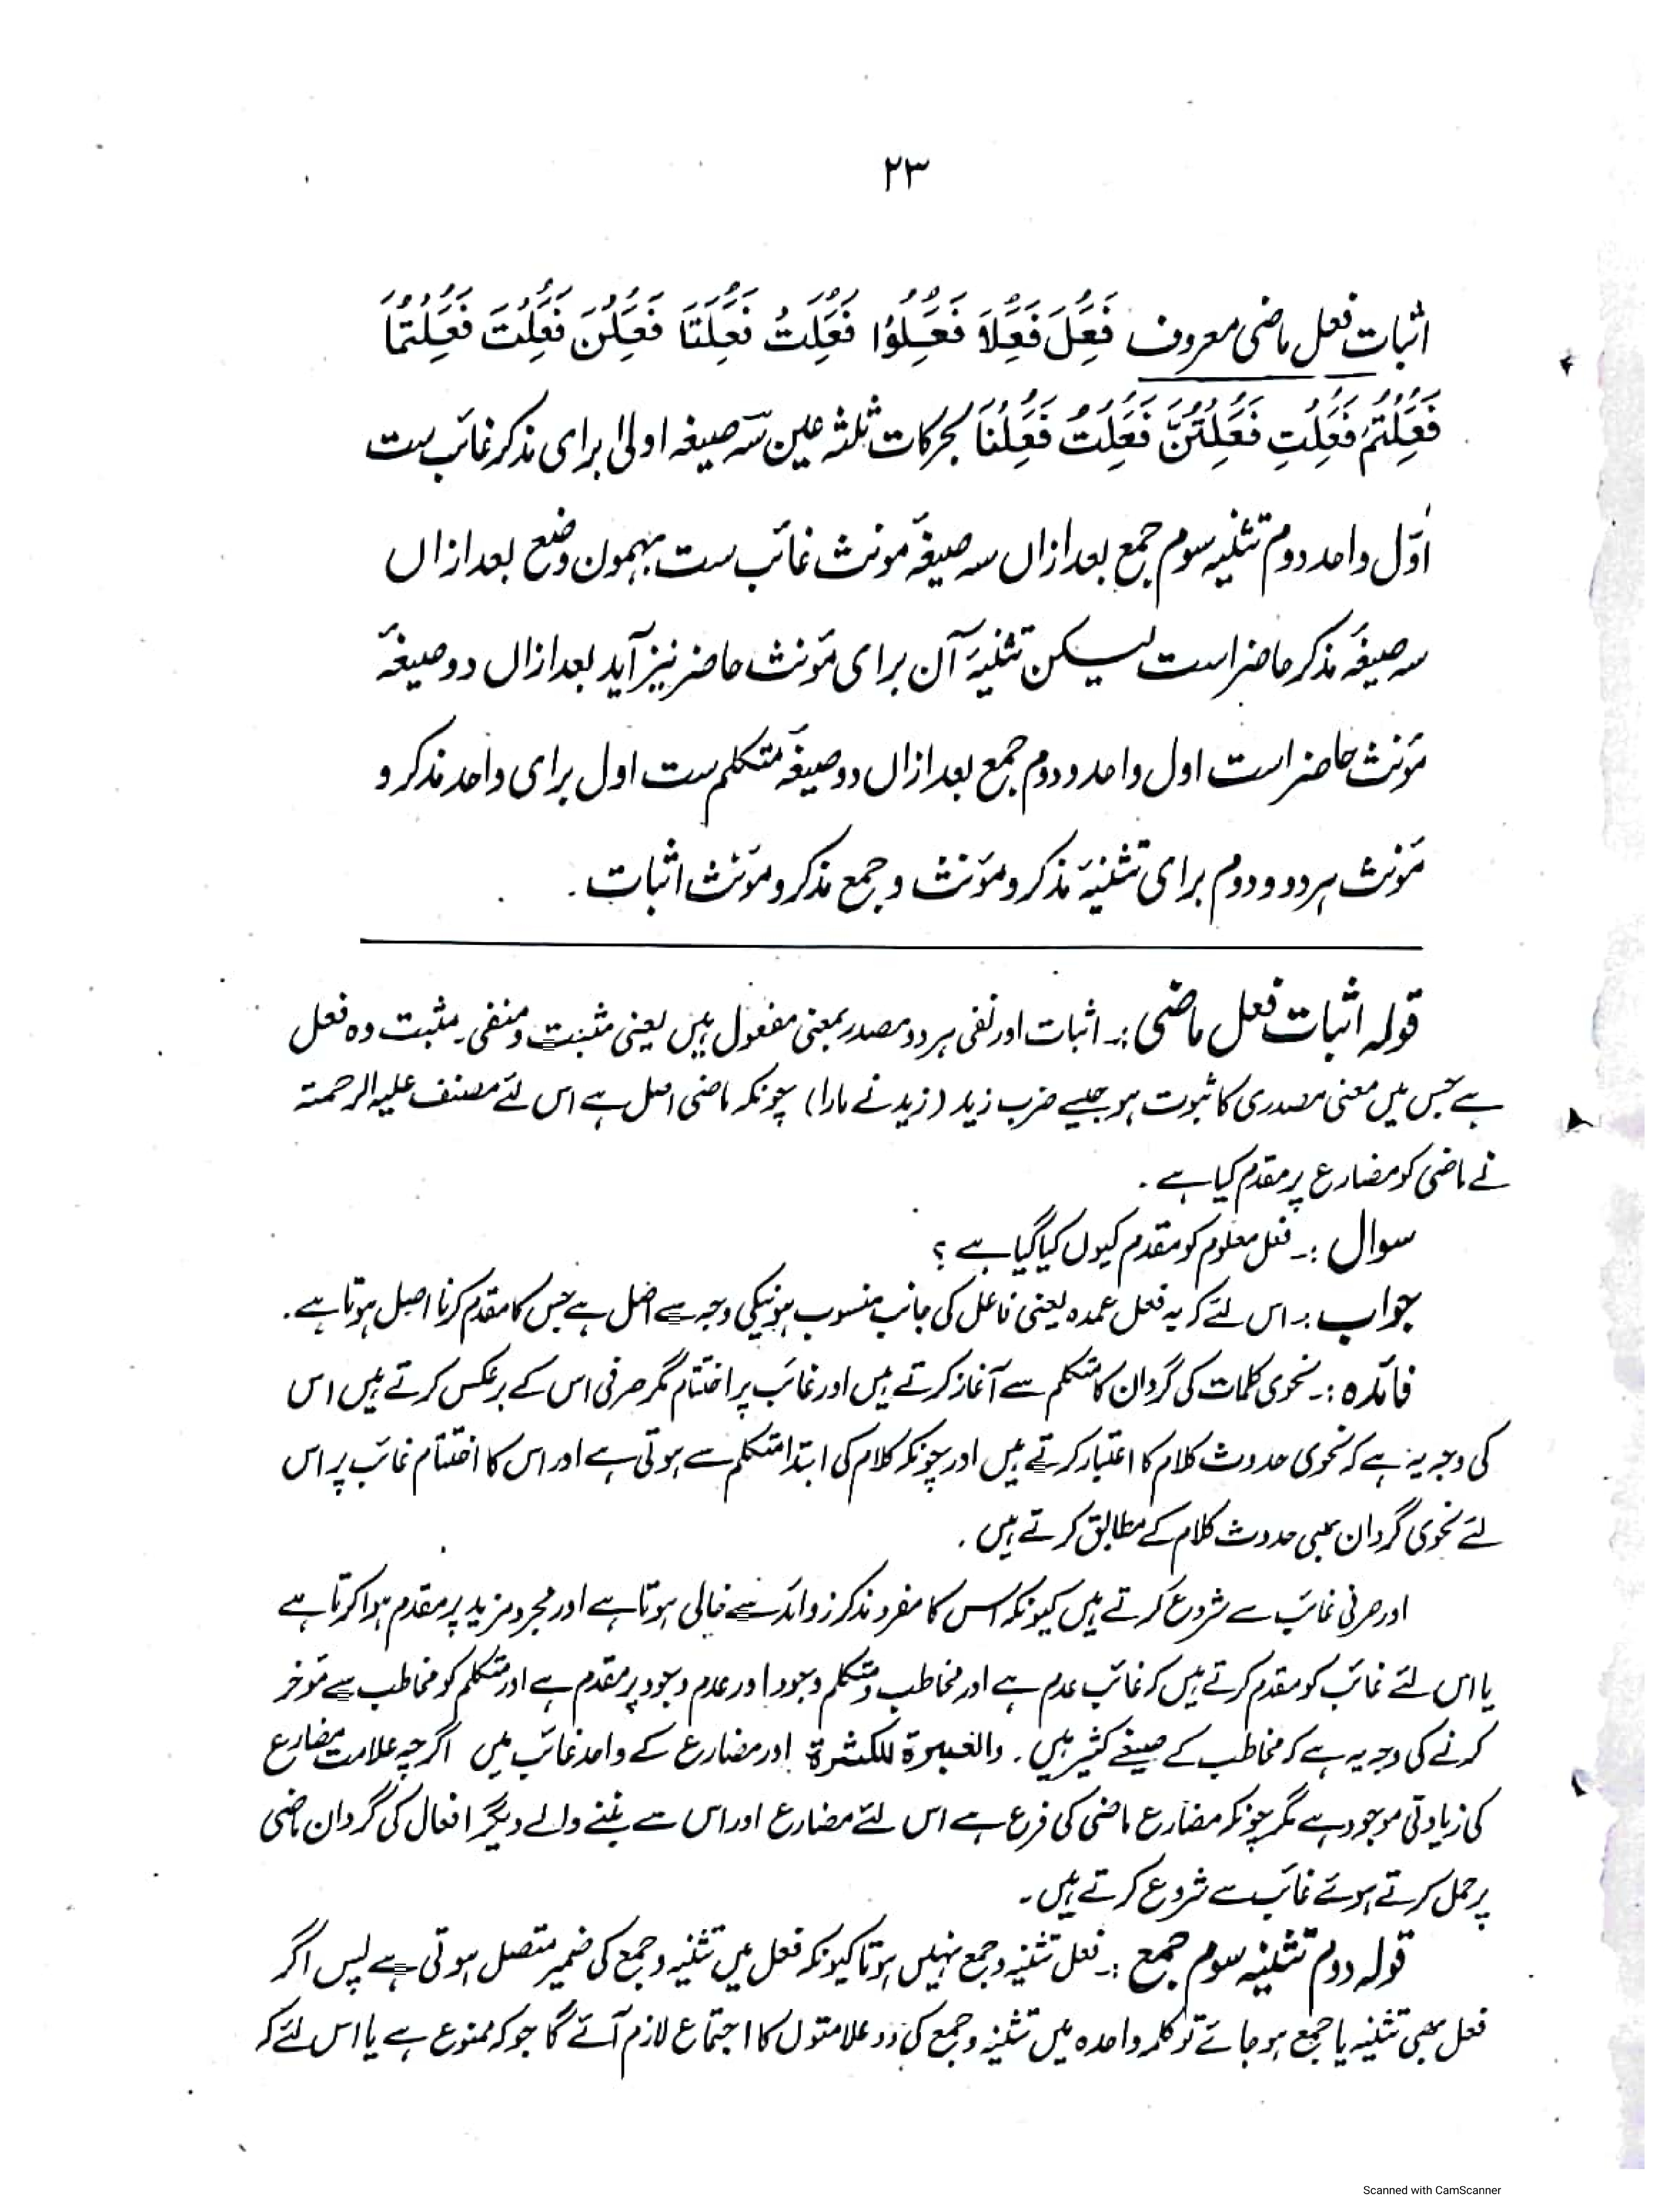 ۲۳
اثبات فعل ماضی معروف فَعَلَ فَعَلَا فَعَلُوْا فَعَلَتْ فَعَلَتَا فَعَلْنَ فَعَلْتَ فَعَلْتُمَا
فَعَلْتُمْ فَعَلْتِ فَعَلْتُنَّ فَعَلْتُ فَعَلْنَا بحرکات ثلٰثہ عین سہ صیغہ اولیٰ برای مذکر غائب ست
اوّل واحد دوم تثنیہ سوم جمع بعد ازاں سہ صیغۂ مونث غائب ست بہمون وضع بعد ازاں
سہ صیغۂ مذکر حاضر است لیکن تثنیۂ آن برای مؤنث حاضر نیز آید بعد ازاں دو صیغۂ
مؤنث حاضر است اول واحد و دوم جمع بعد ازاں دو صیغۂ متکلم ست اول برای واحد مذکر و
مؤنث ہر دو و دوم برای تثنیۂ مذکر و مؤنث و جمع مذکر و مؤنث اثبات ۔
قولہ اثبات فعل ماضی :۔ اثبات اور نفی ہر دو مصدر بمعنی مفعول ہیں یعنی مثبت و منفی ۔ مثبت وہ فعل
ہے جس میں معنی مصدری کا ثبوت ہو جیسے ضرب زید (زید نے مارا) چونکہ ماضی اصل ہے اس لئے مصنف علیہ الرحمتہ
نے ماضی کو مضارع پر مقدم کیا ہے ۔
سوال :۔ فعل معلوم کو مقدم کیوں کیا گیا ہے ؟
جواب :۔ اس لئے کہ یہ فعل عمدہ یعنی فاعل کی جانب منسوب ہونیکی وجہ سے اصل ہے جس کا مقدم کرنا اصل ہوتا ہے ۔
فائدہ :۔ نحوی کلمات کی گردان کا متکلم سے آغاز کرتے ہیں اور غائب پر اختتام مگر صرفی اس کے برعکس کرتے ہیں اس
کی وجہ یہ ہے کہ نحوی حدوث کلام کا اعتبار کرتے ہیں اور چونکہ کلام کی ابتدا متکلم سے ہوتی ہے اور اس کا اختتام غائب پر اس
لئے نحوی گردان بھی حدوث کلام کے مطابق کرتے ہیں ۔
اور صرفی غائب سے شروع کرتے ہیں کیونکہ اس کا مفرد مذکر زوائد سے خالی ہوتا ہے اور مجرد مزید پر مقدم ہوا کرتا ہے
یا اس لئے غائب کو مقدم کرتے ہیں کہ غائب عدم ہے اور مخاطب و متکلم وجود اور عدم وجود پر مقدم ہے اور متکلم کو مخاطب سے مؤخر
کرنے کی وجہ یہ ہے کہ مخاطب کے صیغے کثیر ہیں ۔ والعبرۃ للکثرۃ اور مضارع کے واحد غائب میں اگرچہ علامت مضارع
کی زیادتی موجود ہے مگر چونکہ مضارع ماضی کی فرع ہے اس لئے مضارع اور اس سے بننے والے دیگر افعال کی گردان ماضی
پر حمل کرتے ہوئے غائب سے شروع کرتے ہیں ۔
قولہ دوم تثنیہ سوم جمع :۔ فعل تثنیہ و جمع نہیں ہوتا کیونکہ فعل میں تثنیہ و جمع کی ضمیر متصل ہوتی ہے پس اگر
فعل بھی تثنیہ یا جمع ہو جائے تو کلمہ واحدہ میں تثنیہ و جمع کی دو علامتوں کا اجتماع لازم آئے گا جو کہ ممنوع ہے یا اس لئے کہ
Scanned with CamScanner